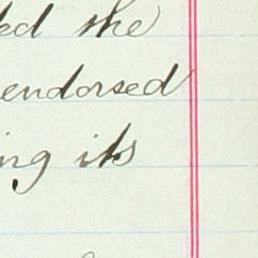 ked the
endorsed
ing its